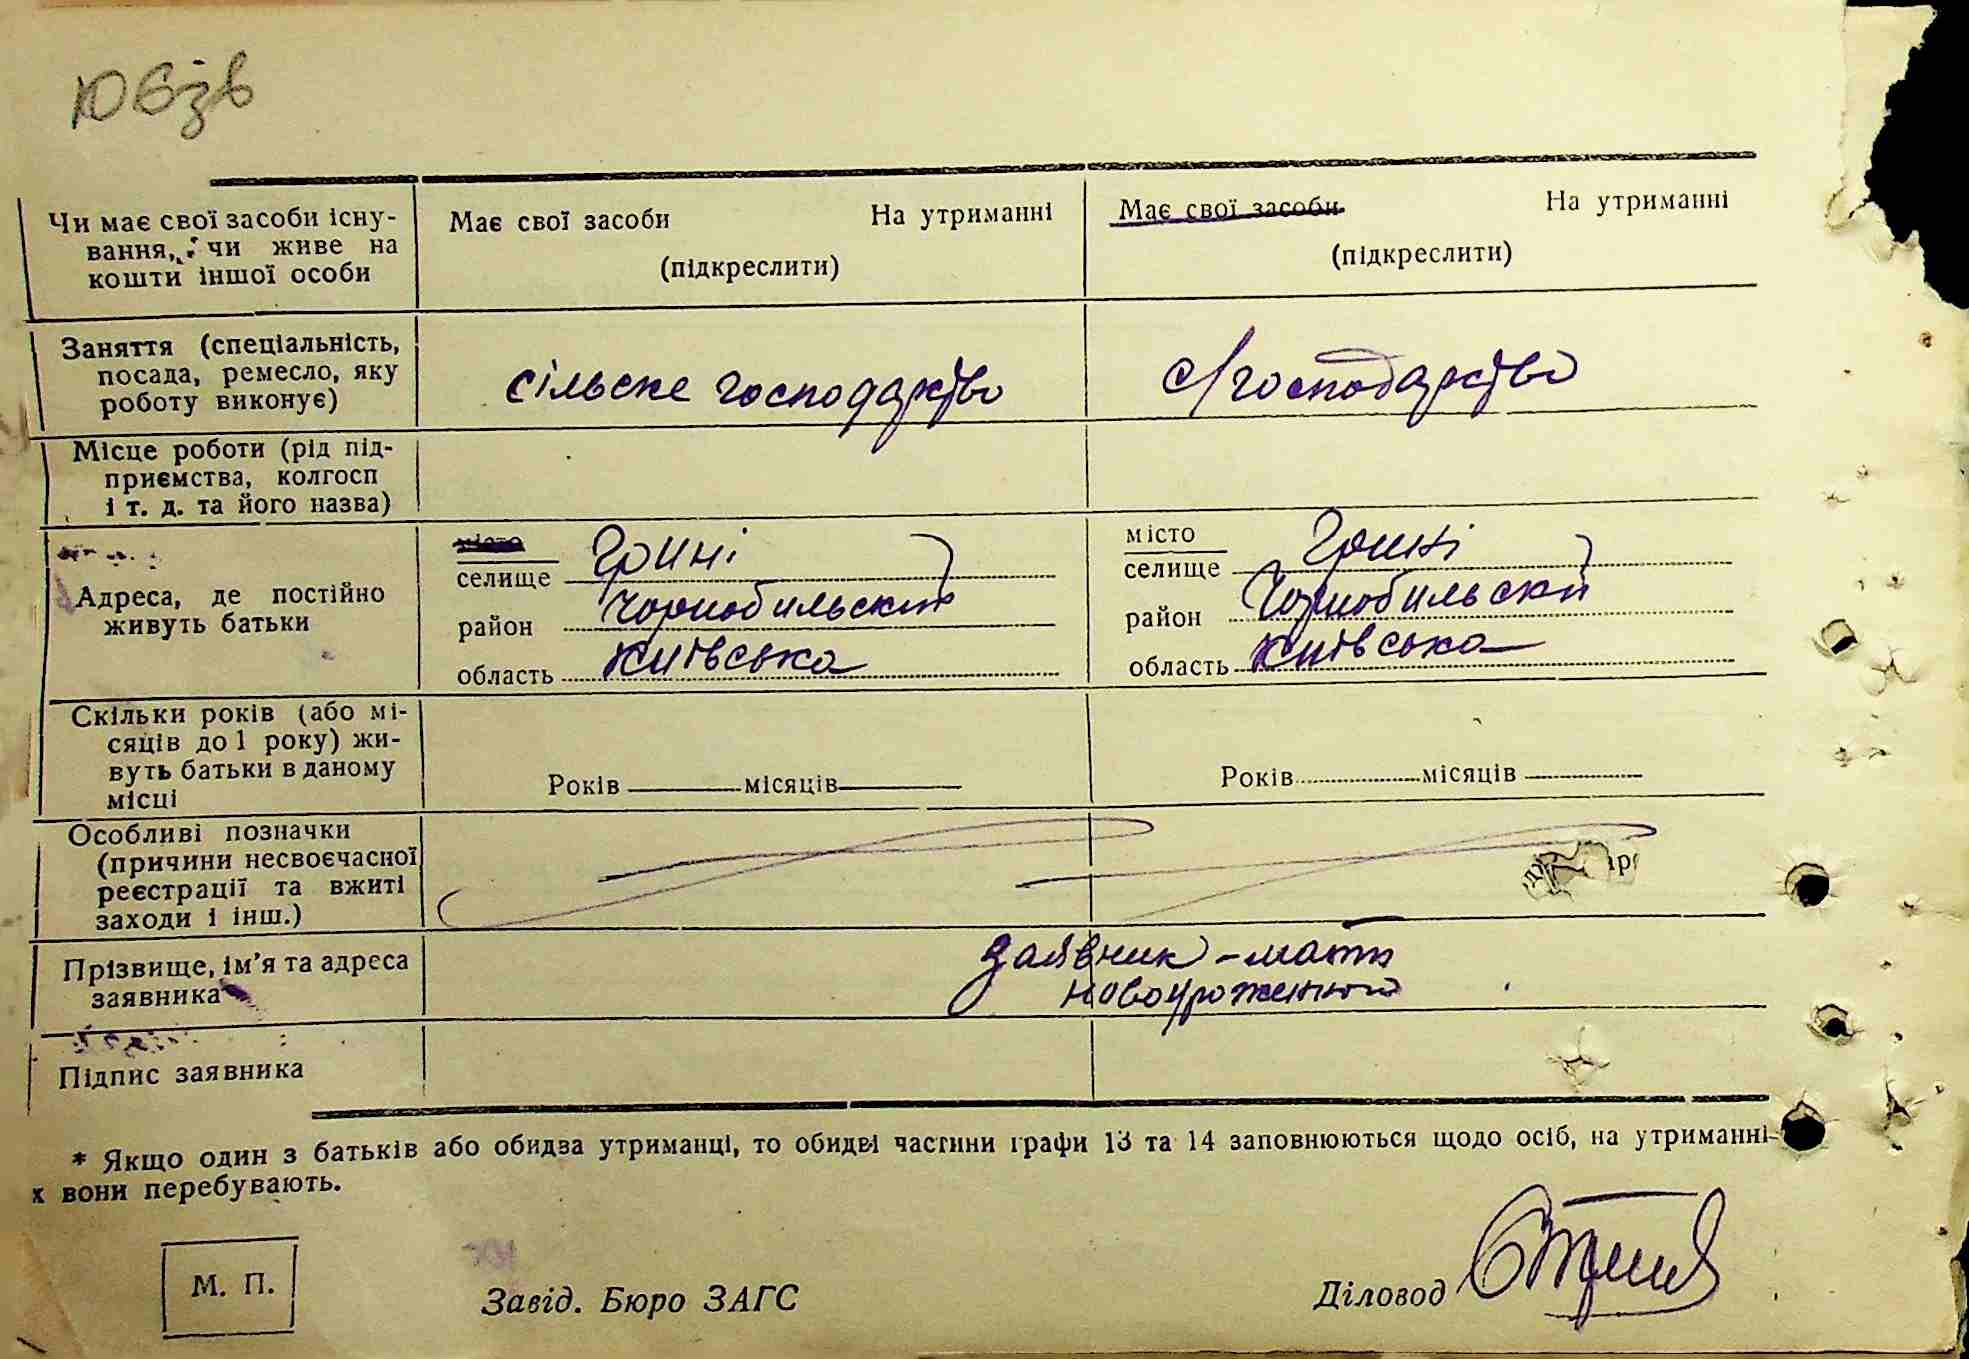 Чи має свої засоби існу-
вання, чи живе на
кошти іншої особи
Має свої засоби На утриманні
(підкреслити)
Має свої засоби На утриманні
(підкреслити)
Заняття (спеціальність,
посада, ремесло, яку
роботу виконує)
сільске господарство
с/господарство
Місце роботи (рід під-
приємства, колгосп
і т. д. та його назва)
Адреса, де постійно
живуть батьки
місто
селище Грині
район Чорнобильский
область Київська
місто
селище Грині
район Чорнобильский
область Київська
Скільки років (або мі-
сяців до 1 року) жи-
вуть батьки в даному
місці
Років місяців
Років місяців
Особливі позначки
(причини несвоєчасної
реєстрації та вжиті
заходи і інш.)
Прізвище, ім'я та адреса
заявника
заявник - мати
Підпис заявника
* Якщо один з батьків або обидва утриманці, то обидві частини графи 13 та 14 заповнюються щодо осіб, на утриманні
х вони перебувають.
М. П.
Завід. Бюро ЗАГС
Діловод